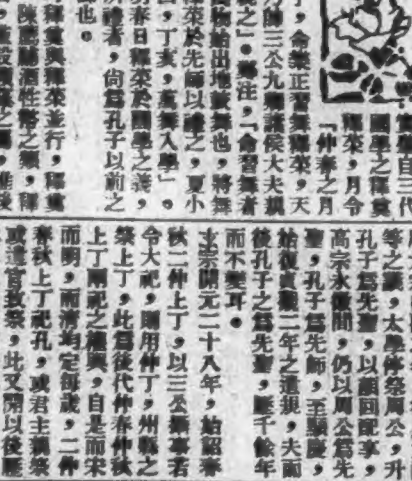 學自三代
國學之釋奠
釋菜,月令
「仲春之月
,命樂正習舞釋菜,天
子帥三公九卿諸侯大夫親
之」。鄭注,「命習舞者
物始出地鼓舞也,將舞
菜於先師以禮之,夏小
,丁亥,萬舞入學」。
明春日釋菜於國學之義,
所禮者,尚爲孔子以前之
師也。
釋奠與釋菜並行,釋奠
等之議,太學停祭周公,升
孔子爲先聖,以顏回配享,
高宗永徽間,仍以周公爲先
聖,孔子爲先師,至顯慶,
始復貞觀二年之遺規,夫而
後孔子之爲先聖,歷千餘年
而不變耳。
玄宗開元二十八年,始詔春
秋二仲上丁,以三公攝事若
令大祀,則用仲丁,州縣之
祭上丁,此爲後代仲春仲秋
上丁兩祀之權輿,自是而宋
而明,而清均定每歲,二仲
春秋上丁祀孔,或君主親祭
或遣官致祭,此又開以後歷